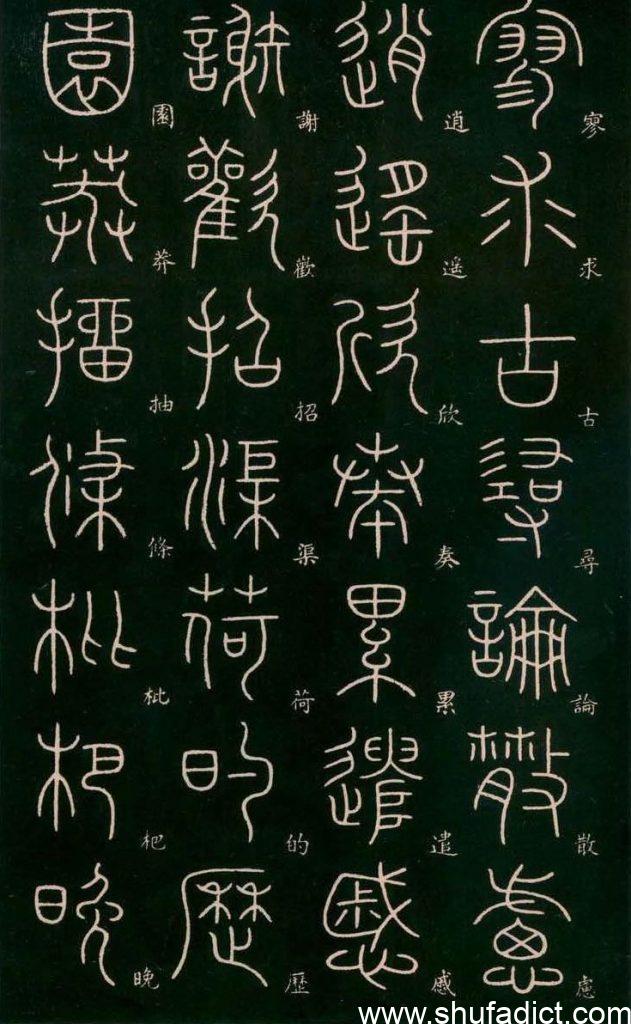 寥求古尋論散慮
逍遙欣奏累遣慼
謝歡招渠荷的歷
園莽抽條枇杷晚
www.shufadict.com